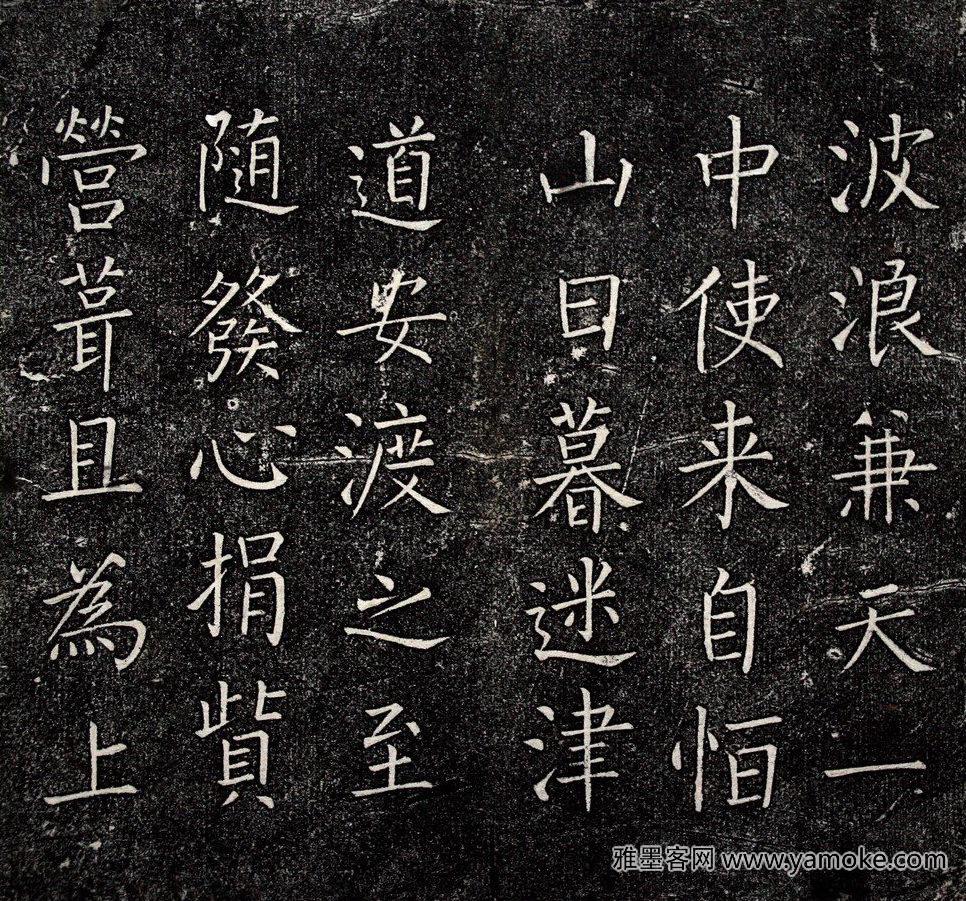 波浪兼天一
中使来自恒
山日暮迷津
道安渡之至
随發心捐貲
營葺且為上
雅墨客网 www.yamoke.com